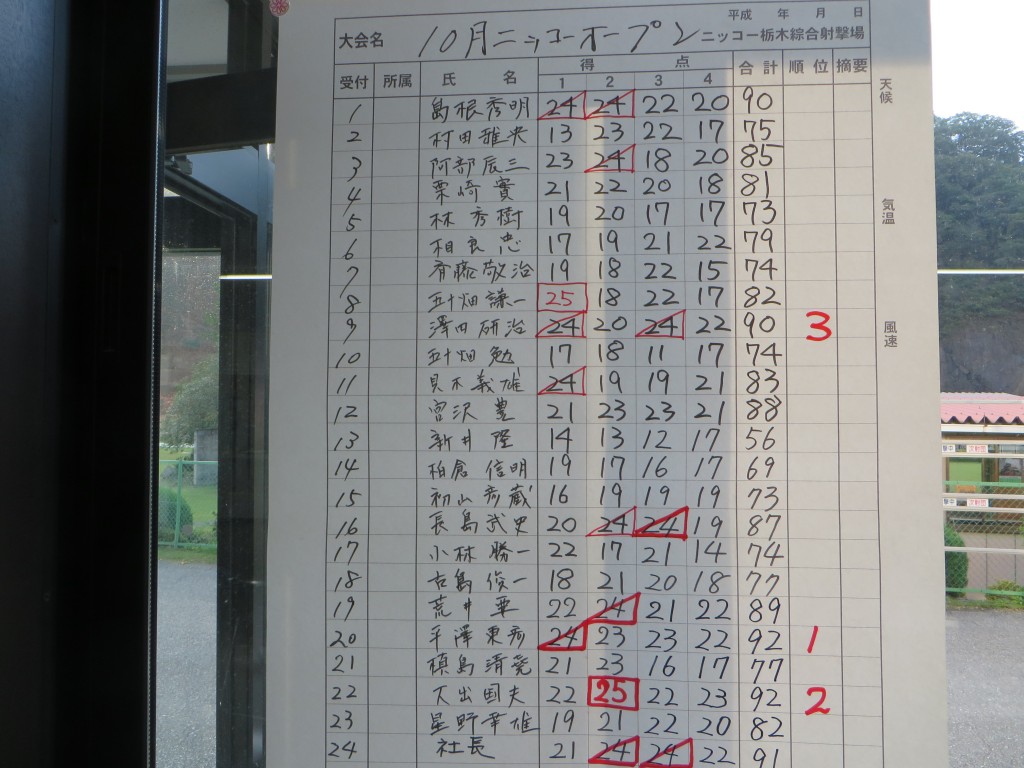 平成 年 月 日
大会名 10月ニッコーオープン ニッコー栃木綜合射撃場
受付 所属 氏名 得点 合計 順位 摘要
1 2 3 4
1 島根秀明 24 24 22 20 90
2 村田雅央 13 23 22 17 75
3 阿部辰三 23 24 18 20 85
4 栗崎實 21 22 20 18 81
5 林秀樹 19 20 17 17 73
6 相良忠 17 19 21 22 79
7 斉藤敬治 19 18 22 15 74
8 五十畑謙一 25 18 22 17 82
9 澤田研治 24 20 24 22 90 3
10 五十畑勉 17 18 11 17 74
11 貝木義雄 24 19 19 21 83
12 宮沢豊 21 23 23 21 88
13 新井隆 14 13 12 17 56
14 柏倉信明 19 17 16 17 69
15 初山彦蔵 16 19 19 19 73
16 長島武史 20 24 24 19 87
17 小林勝一 22 17 21 14 74
18 古島俊一 18 21 20 18 77
19 荒井華 22 24 21 22 89
20 平澤東彦 24 23 23 22 92 1
21 槙島清 21 23 16 17 77
22 大出国夫 22 25 22 23 92 2
23 星野幸雄 19 21 22 20 82
24 社長 21 24 24 22 91
天候
気温
風速